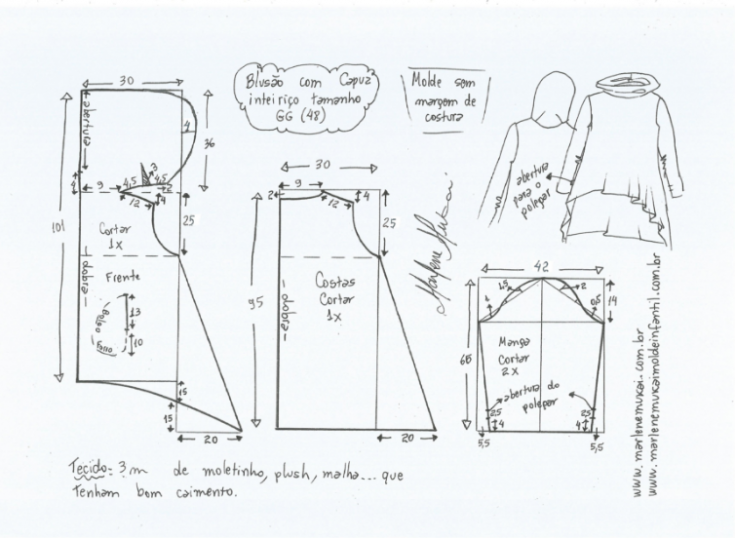 Blusão com Capuz
inteiriço tamanho
GG (48)
Molde sem
margem de
costura
30
abertura
4
36
3
4,5
4,5
2
4
9
12
4
101
25
Cortar
1x
dobra
Frente
13
Bolso
Faca
10
15
15
20
30
2
9
12
4
25
95
dobra
Costas
Cortar
1x
20
Marlene Mukai
abertura
para o
polegar
42
1,5
2
14
0,5
Manga
Cortar
2x
abertura do
polegar
2,5
4
2,5
4
5,5
5,5
www.marlenemukai.com.br
www.marlenemukaimoldeinfantil.com.br
Tecido: 3m de moletinho, plush, malha... que
Tenham bom caimento.